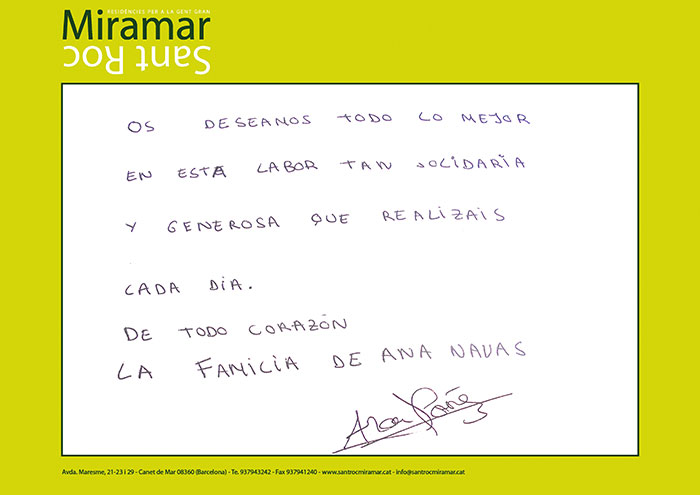 RESIDÈNCIES PER A LA GENT GRAN
Miramar
Sant Roc
OS DESEAMOS TODO LO MEJOR
EN ESTA LABOR TAN SOLIDARIA
Y GENEROSA QUE REALIZAIS
CADA DIA.
DE TODO CORAZÓN
LA FAMILIA DE ANA NAVAS
Avda. Maresme, 21-23 i 29 - Canet de Mar 08360 (Barcelona) - Te. 937943242 - Fax 937941240 - www.santrocmiramar.cat - info@santrocmiramar.cat